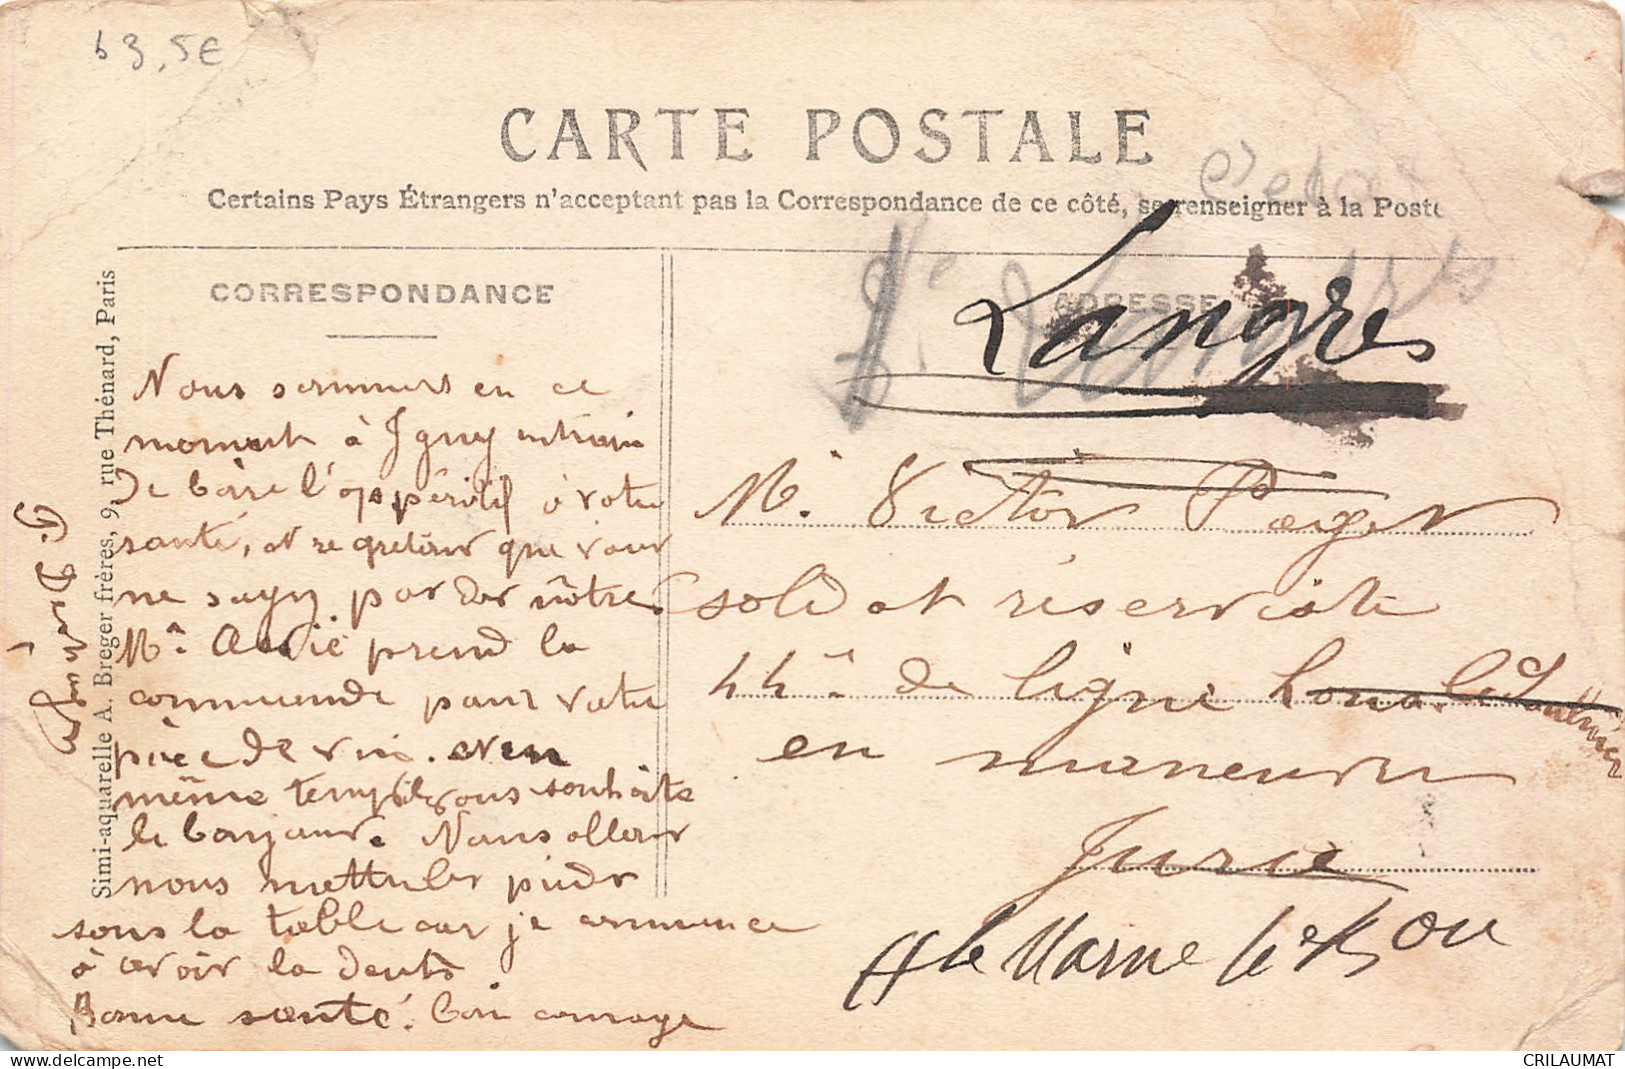 63,5€
CARTE POSTALE
Certains Pays Étrangers n'acceptant pas la Correspondance de ce côté, se renseigner à la Poste
CORRESPONDANCE
ADRESSE
Simi-aquarelle A. Breger frères, 9, rue Thénard, Paris
Nous sommes en ce
moment à Igney entrain
De boire l'oppéritif à votre
santé, et regretons que vous
ne soyez pas des nôtres
Mr prend la
commende pour votre
pièce de vin. et en
même temps vous souhaite
le bonjour. Nous allons
nous mettre les pieds
sous la table car je commence
à avoir la dents
Bonne santé. Bon courage
Langres
Mr Victor
soldat réserviste
44e de ligne Lons. le Saulnier
en maneuvre
Jura
Hte Marne 6e
CRILAUMAT